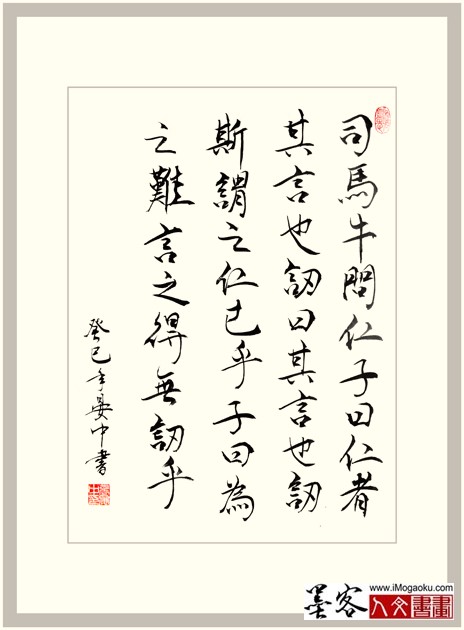 司馬牛問仁子曰仁者
其言也訒曰其言也訒
斯謂之仁已乎子曰為
之難言之得無訒乎
癸巳年晏中書
墨客
www.iMogaoku.com
人文書畫